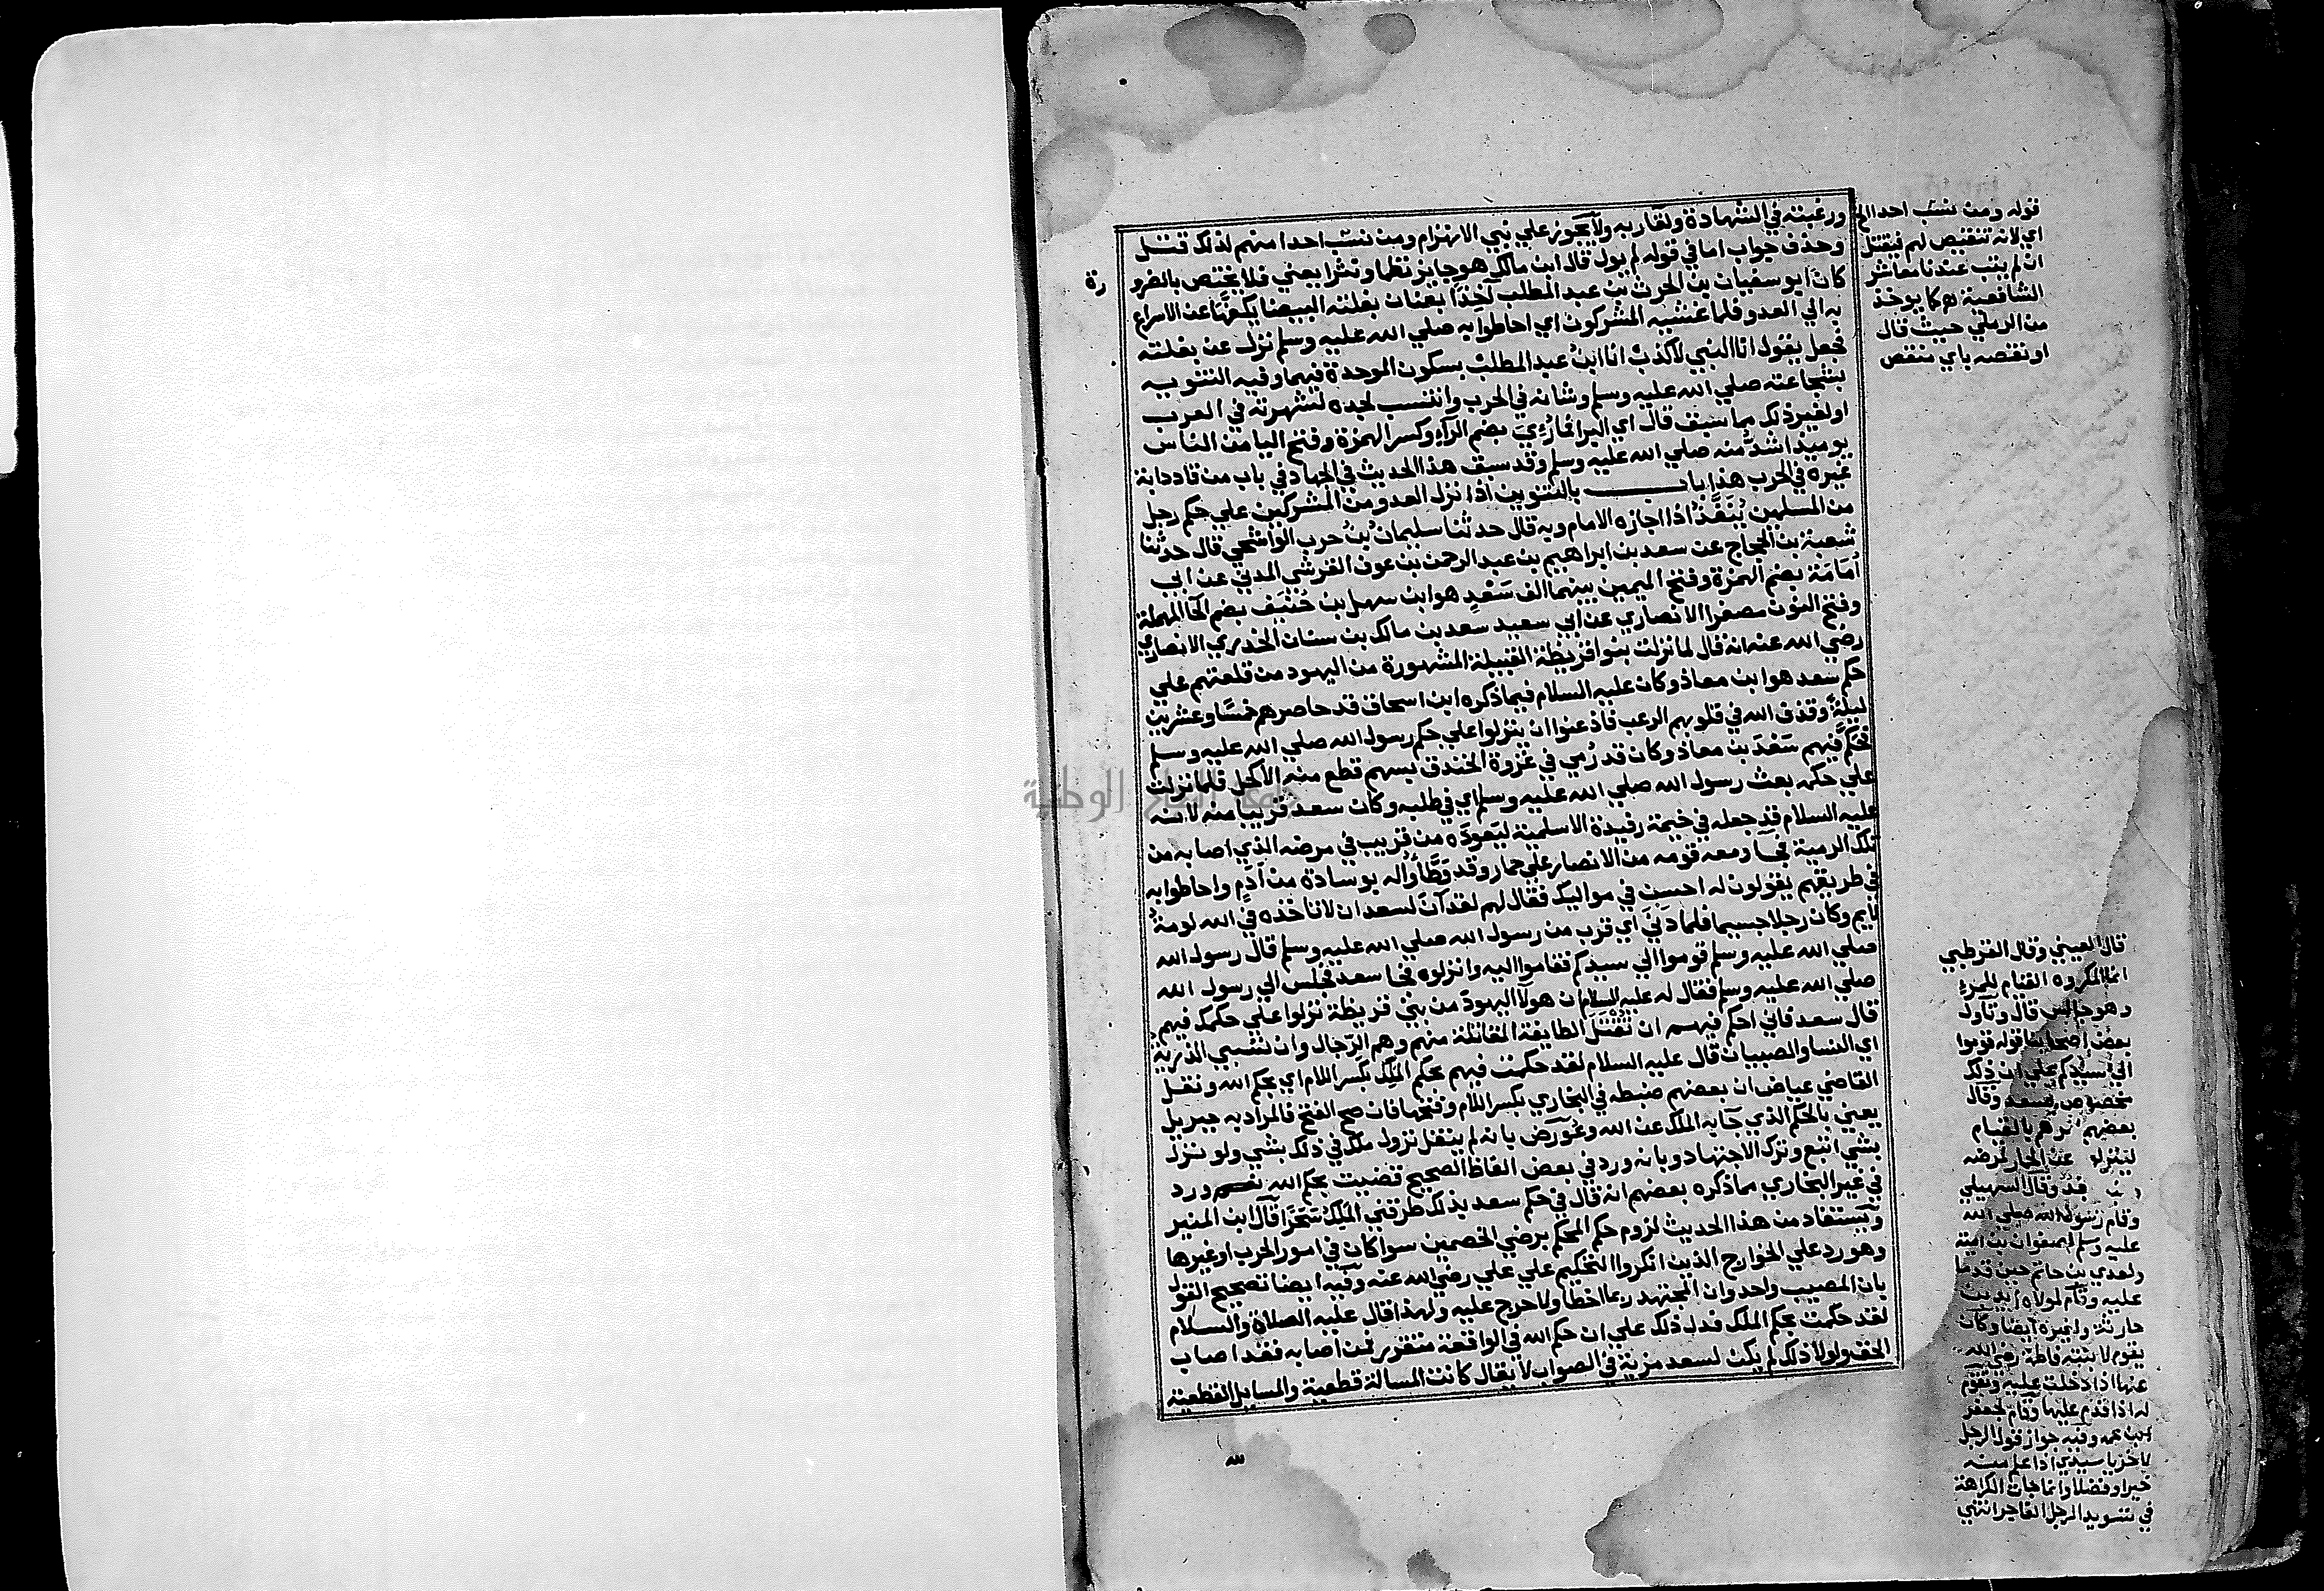 ورغبته في الشهادة ولقاربه ولا يجوز علي نبي الانهزام ومن نسب احدا منهم لذلك قتل
وحذف جواب اما في قوله لم يول قال ابن مالك هو جايز نظما ونثرا يعني فلا يختص بالضرو
رة
كان ابو سفيان بن الحرث بن عبد المطلب آخذا بعنان بغلته البيضا يكفها عن الاسراع
به الي العدو فلما غشيه المشركون اي احاطوا به صلي الله عليه وسلم نزل عن بغلته
فجعل يقول انا النبي لا كذب انا ابن عبد المطلب بسكون الموحدة فيهما وفيه التنويه
بشجاعته صلي الله عليه وسلم وشانه في الحرب وانتسب لجده لشهرته في العرب
او لغير ذلك مما سبق قال اي البرا فما رُئِيَ بضم الراء وكسر الهمزة وفتح اليا من الناس
يوميذ اشد منه صلي الله عليه وسلم وقد سبق هذا الحديث في الجهاد في باب من قاد دابة
غيره في الحرب هذا باب بالتنوين اذا نزل العدو من المشركين علي حكم رجل
من المسلمين يُنَفَّذ اذا اجازه الامام وبه قال حدثنا سليمان بن حرب الواشحي قال حدثنا
شعبة بن الحجاج عن سعد بن ابراهيم بن عبد الرحمن بن عوف القرشي المدني عن ابي
أمامة بضم الهمزة وفتح الميمين بينهما الف سَعْدٍ هو ابن سهل بن حُنَيف بضم الحا المهملة
وفتح النون مصغرا الانصاري عن ابي سعيد سعد بن مالك بن سنان الخدري الانصاري
رضي الله عنه انه قال لما نزلت بنوا قريظة القبيلة المشهورة من اليهود من قلعتهم علي
حكم سعد هو ابن معاذ وكان عليه السلام فيما ذكره ابن اسحاق قد حاصرهم خمسًا وعشرين
ليلةً وقذف الله في قلوبهم الرعب فاذعنوا ان ينزلوا علي حكم رسول الله صلي الله عليه وسلم
فحكم فيهم سَعْدَ بن معاذ وكان قد رُمي في غزوة الخندق بسهم قطع منه الاكحل فلما نزلت
علي حكمه بعث رسول الله صلي الله عليه وسلم اي في طلبه وكان سعد قريبا منه لانه
عليه السلام قد جعله في خيمة رفيدة الاسلمية ليعوده من قريب في مرضه الذي اصابه من
تلك الرمية فجا ومعه قومه من الانصار علي حمار وقد وَطَّاوا له بوسادة من اَدَمٍ واحاطوا به
في طريقهم يقولون له احسن في مواليك فقال لهم لقد آن لسعد ان لا تاخذه في الله لومة
لايم وكان رجلا جسيما فلما دَنَي اي قرب من رسول الله صلي الله عليه وسلم قال رسول الله
صلي الله عليه وسلم قوموا الي سيدكم فقاموا اليه وانزلوه فجا سعد فجلس الي رسول الله
صلي الله عليه وسلم فقال له عليه السلام ان هولا اليهود من بني قريظة نزلوا علي حكمك فيهم
قال سعد فاني احكم فيهم ان تُقْتَلَ الطايفة المقاتلة منهم وهم الرجال وان تسبي الذرية
اي النسا والصبيان قال عليه السلام لقد حكمت فيهم بحكم الملك بكسر اللام اي بحكم الله ونقل
القاضي عياض ان بعضهم ضبطه في البخاري بكسر اللام وفتحها فان صح الفتح فالمراد به جبريل
يعني بالحكم الذي جا به الملك عن الله وعُورِض بانه لم ينقل نزول ملك في ذلك بشي ولو نزل
بشي اتبع وترك الاجتهاد وبانه ورد في بعض الفاظ الصحيح قضيت بحكم الله نعم ورد
في غير البخاري مما ذكره بعضهم انه قال في حكم سعد بذلك طرقني الملك سَحَرًا قال ابن المنير
ويستفاد من هذا الحديث لزوم حكم المحكم برضي الخصمين سوا كان في امور الحرب او غيرها
وهو رد علي الخوارج الذين انكروا التحكيم علي علي رضي الله عنه وفيه ايضا تصحيح القول
بان المصيب واحد وان المجتهد ربما اخطا ولا حرج عليه ولهذا قال عليه الصلاة والسلام
لقد حكمت بحكم الملك فدل ذلك علي ان حكم الله في الواقعة متقرر فمن اصابه فقد اصاب
الحق ولولا ذلك لم يكن لسعد مزية في الصواب لا يقال كانت المسالة قطعية والمسايل القطعية
قوله ومن نسب احدا الخ
اي لانه تنقيص لهم فيقتل
ان لم يتب عندنا معاشر
الشافعية كما يوخذ
من الرملي حيث قال
او نقصه باي منقص
قال العيني وقال القرطبي
انما المكروه القيام للمرء
وهو جالس قال وتاول
بعض اصحابنا قوله قوموا
الي سيدكم علي ان ذلك
مخصوص بسعد وقال
بعضهم امرهم بالقيام
لينزلوه عن الحمار لمرضه
وفيه بعد وقال السهيلي
وقام رسول الله صلي الله
عليه وسلم لصفوان بن امية
ولعدي بن حاتم حين قدما
عليه وقام لمولاه زيد بن
حارثة ولغيره ايضا وكان
يقوم لابنته فاطمة رضي الله
عنها اذا دخلت عليه وتقوم
له اذا قدم عليها وقام لجعفر
ابن عمه وفيه جواز قول الرجل
للاخر يا سيدي اذا علم منه
خيرا وفضلا وانما جات الكراهة
في تسويد الرجل الفاجر انتهي
جامعة النجاح الوطنية